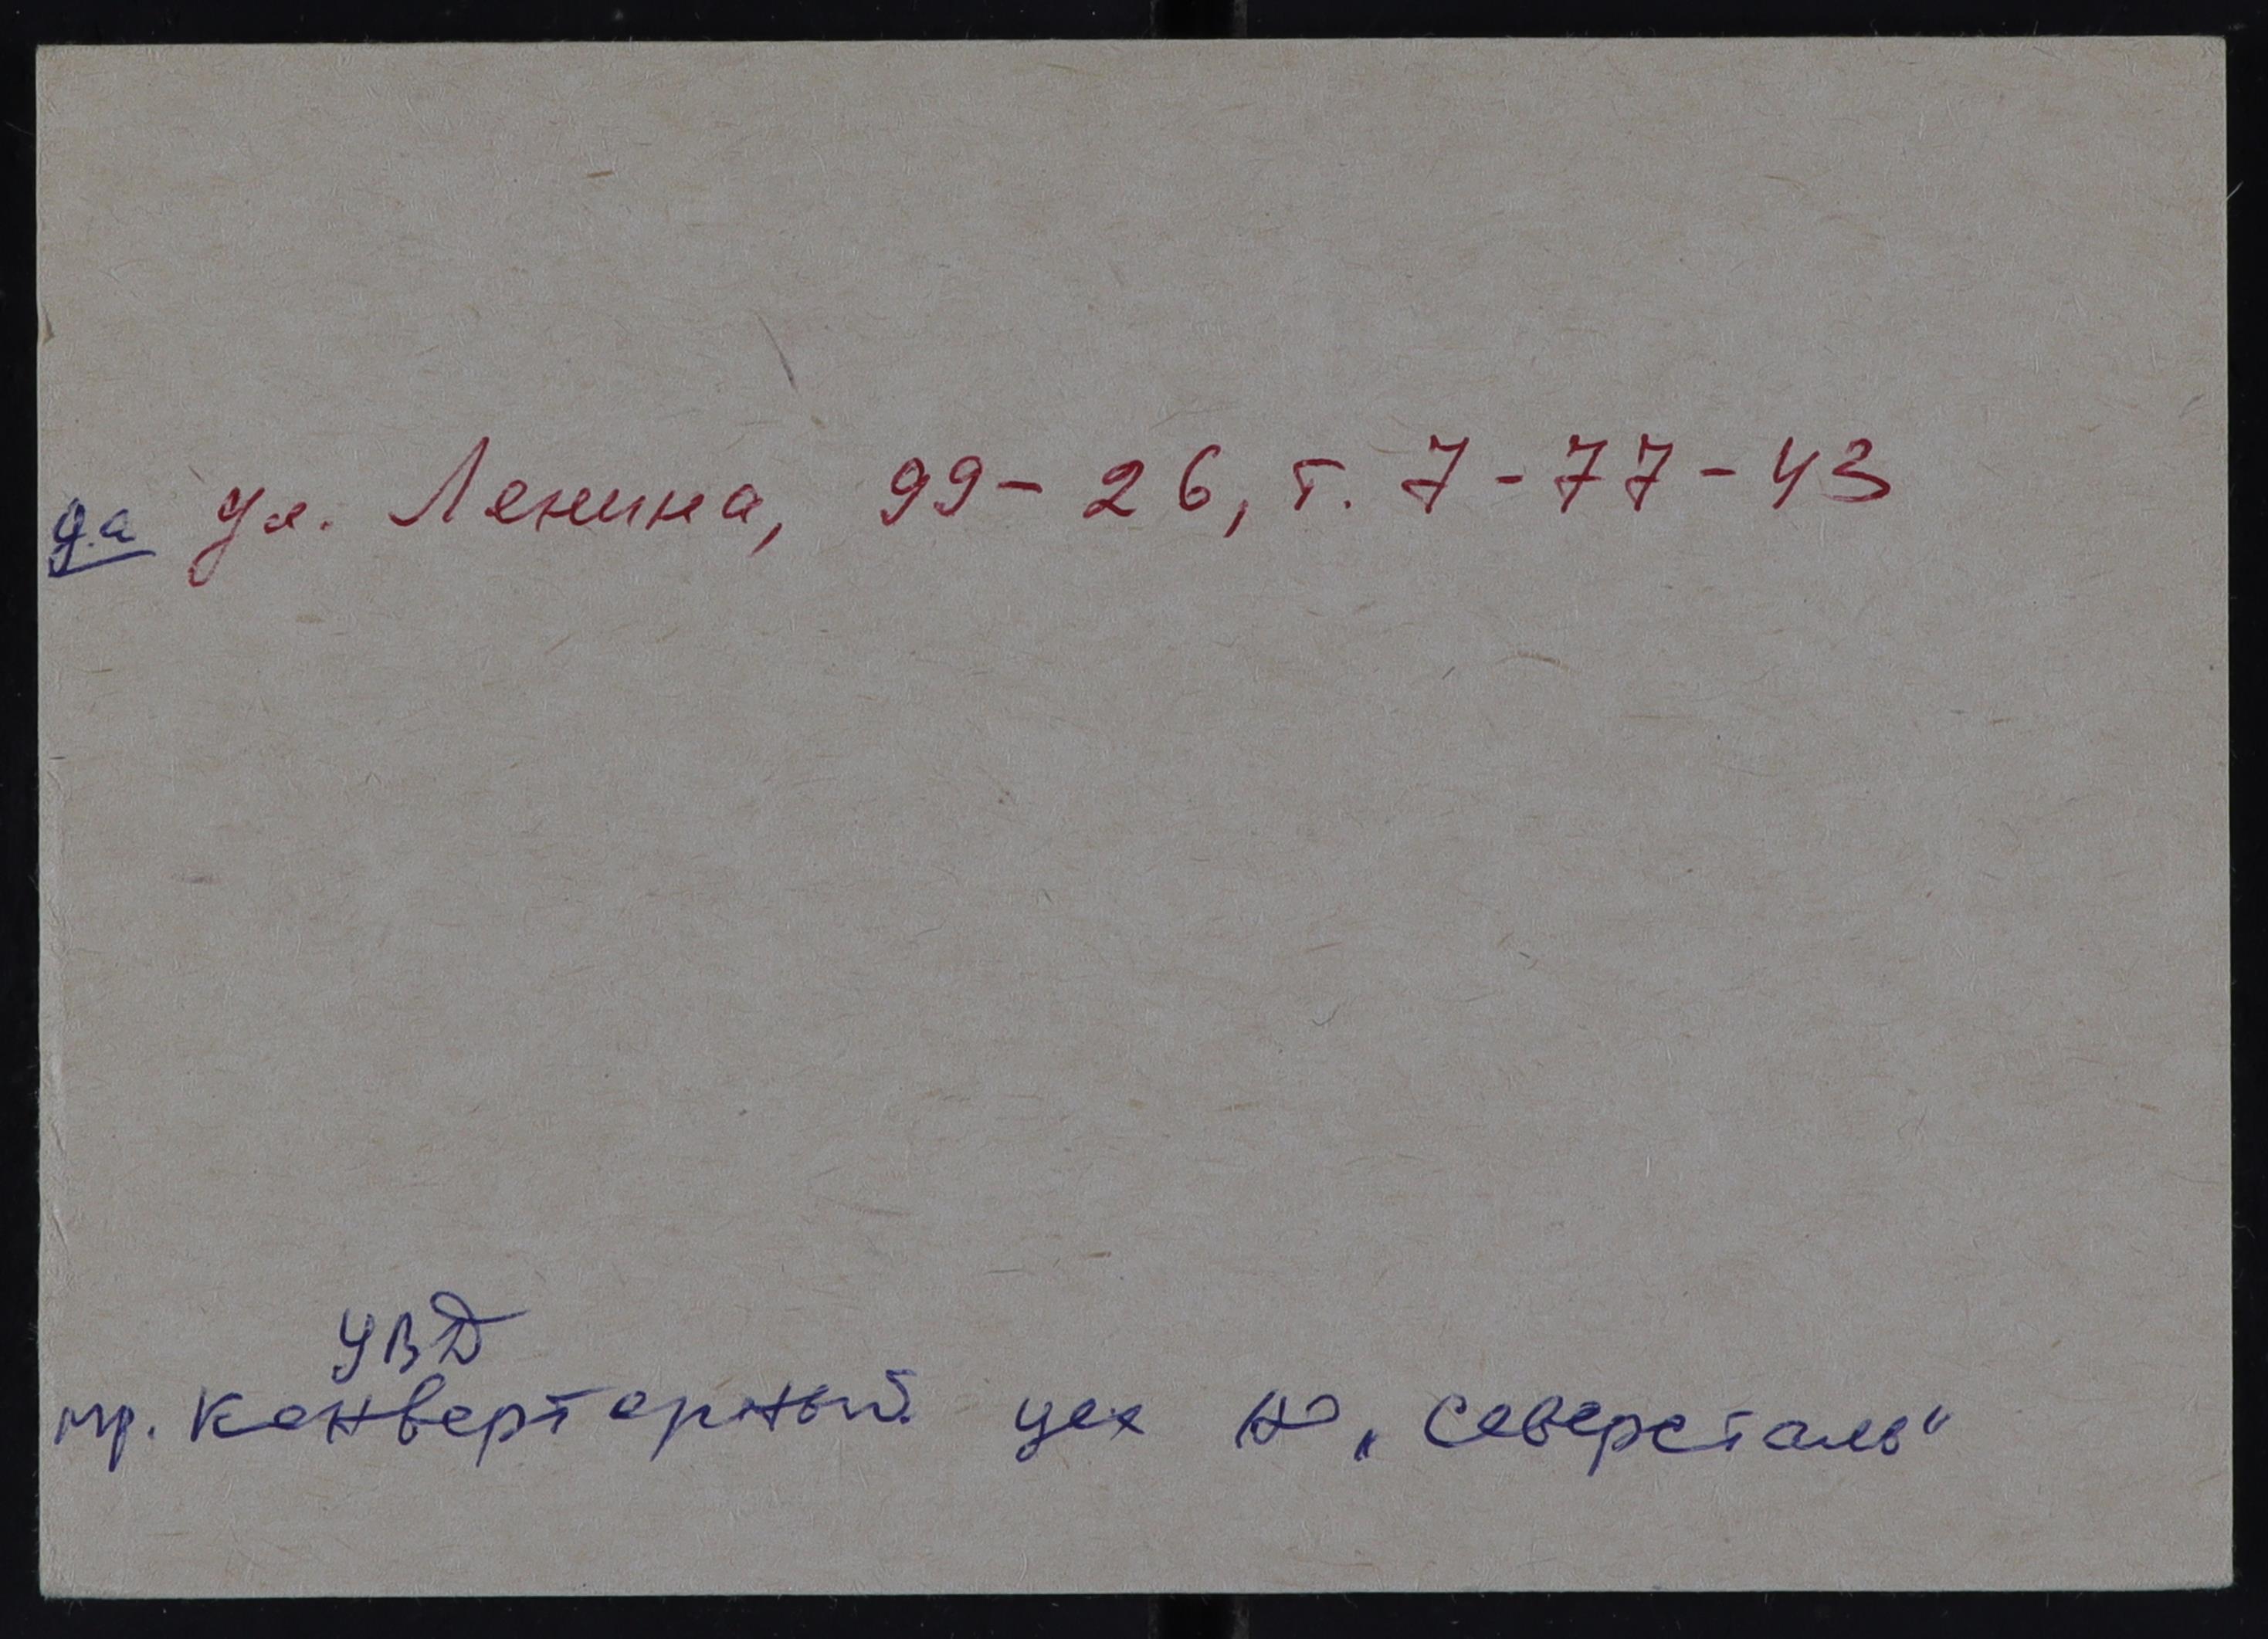 д.а ул. Ленина, 99-26, т. 7-77-43
УВД
пр. Конверторный цех АО „Северсталь“